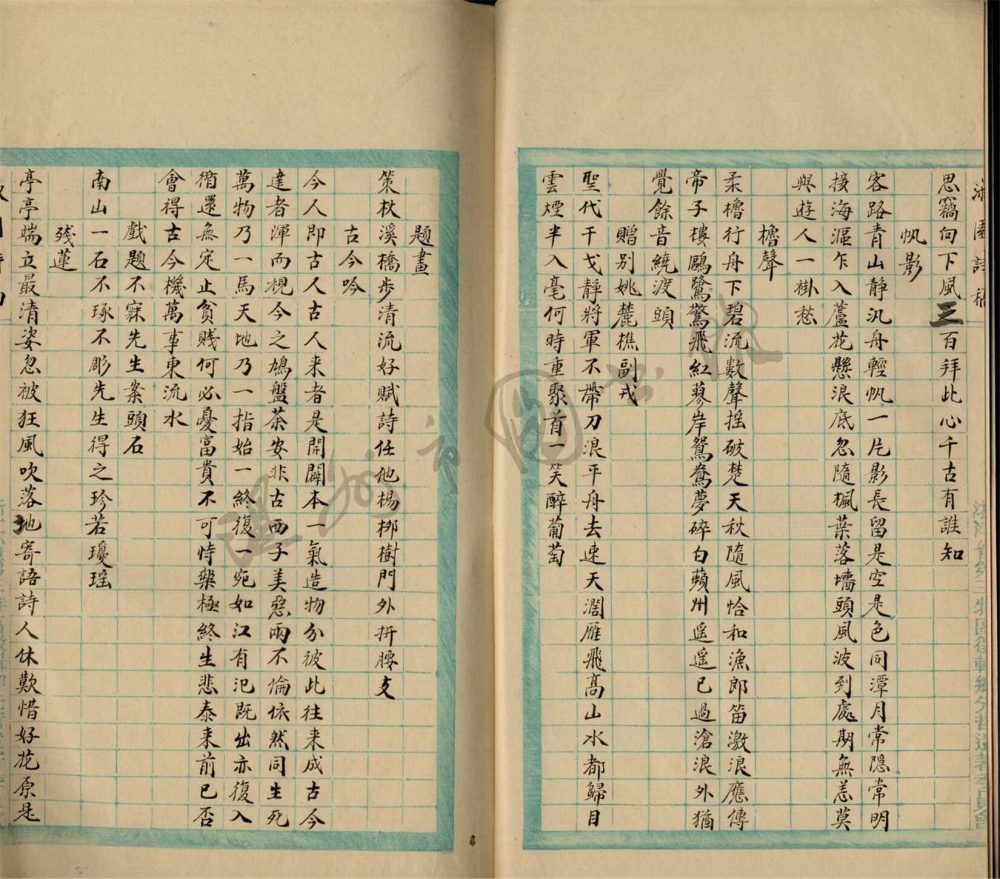 思竊向下風三百拜此心千古有誰知
帆影
客路青山靜汎舟輕帆一片影長留是空是色同潭月常隱常明
接海漚乍入蘆花懸浪底忽隨楓葉落墻頭風波到處期無恙莫
與遊人一掛愁
櫓聲
柔櫓行舟下碧流數聲搖破楚天秋隨風恰和漁郎笛激浪應傳
帝子樓鷗鷺驚飛紅蓼岸鴛鴦夢碎白蘋州遥遥已過滄浪外猶
覺餘音繞渡頭
贈別姚麓樵副戎
聖代干戈靜將軍不帶刀浪平舟去速天濶雁飛高山水都歸目
雲煙半入毫何時重聚首一笑醉葡萄
題畫
策杖溪橋步清流好賦詩任他楊栁樹門外折腰支
古今吟
今人即古人古人来者是開闢本一氣造物分彼此往来成古今
達者渾而視今之鳩盤荼安非古西子美惡兩不倫依然同生死
萬物乃一馬天地乃一指始一終復一宛如江有汜既出亦復入
循還無定止貧賤何必憂富貴不可恃樂極終生悲泰来前已否
會得古今機萬事東流水
戲題不寐先生案頭石
南山一石不琢不彫先生得之珍若瓊瑶
殘蓮
亭亭端立最清姿忽被狂風吹落地寄語詩人休歎惜好花原是